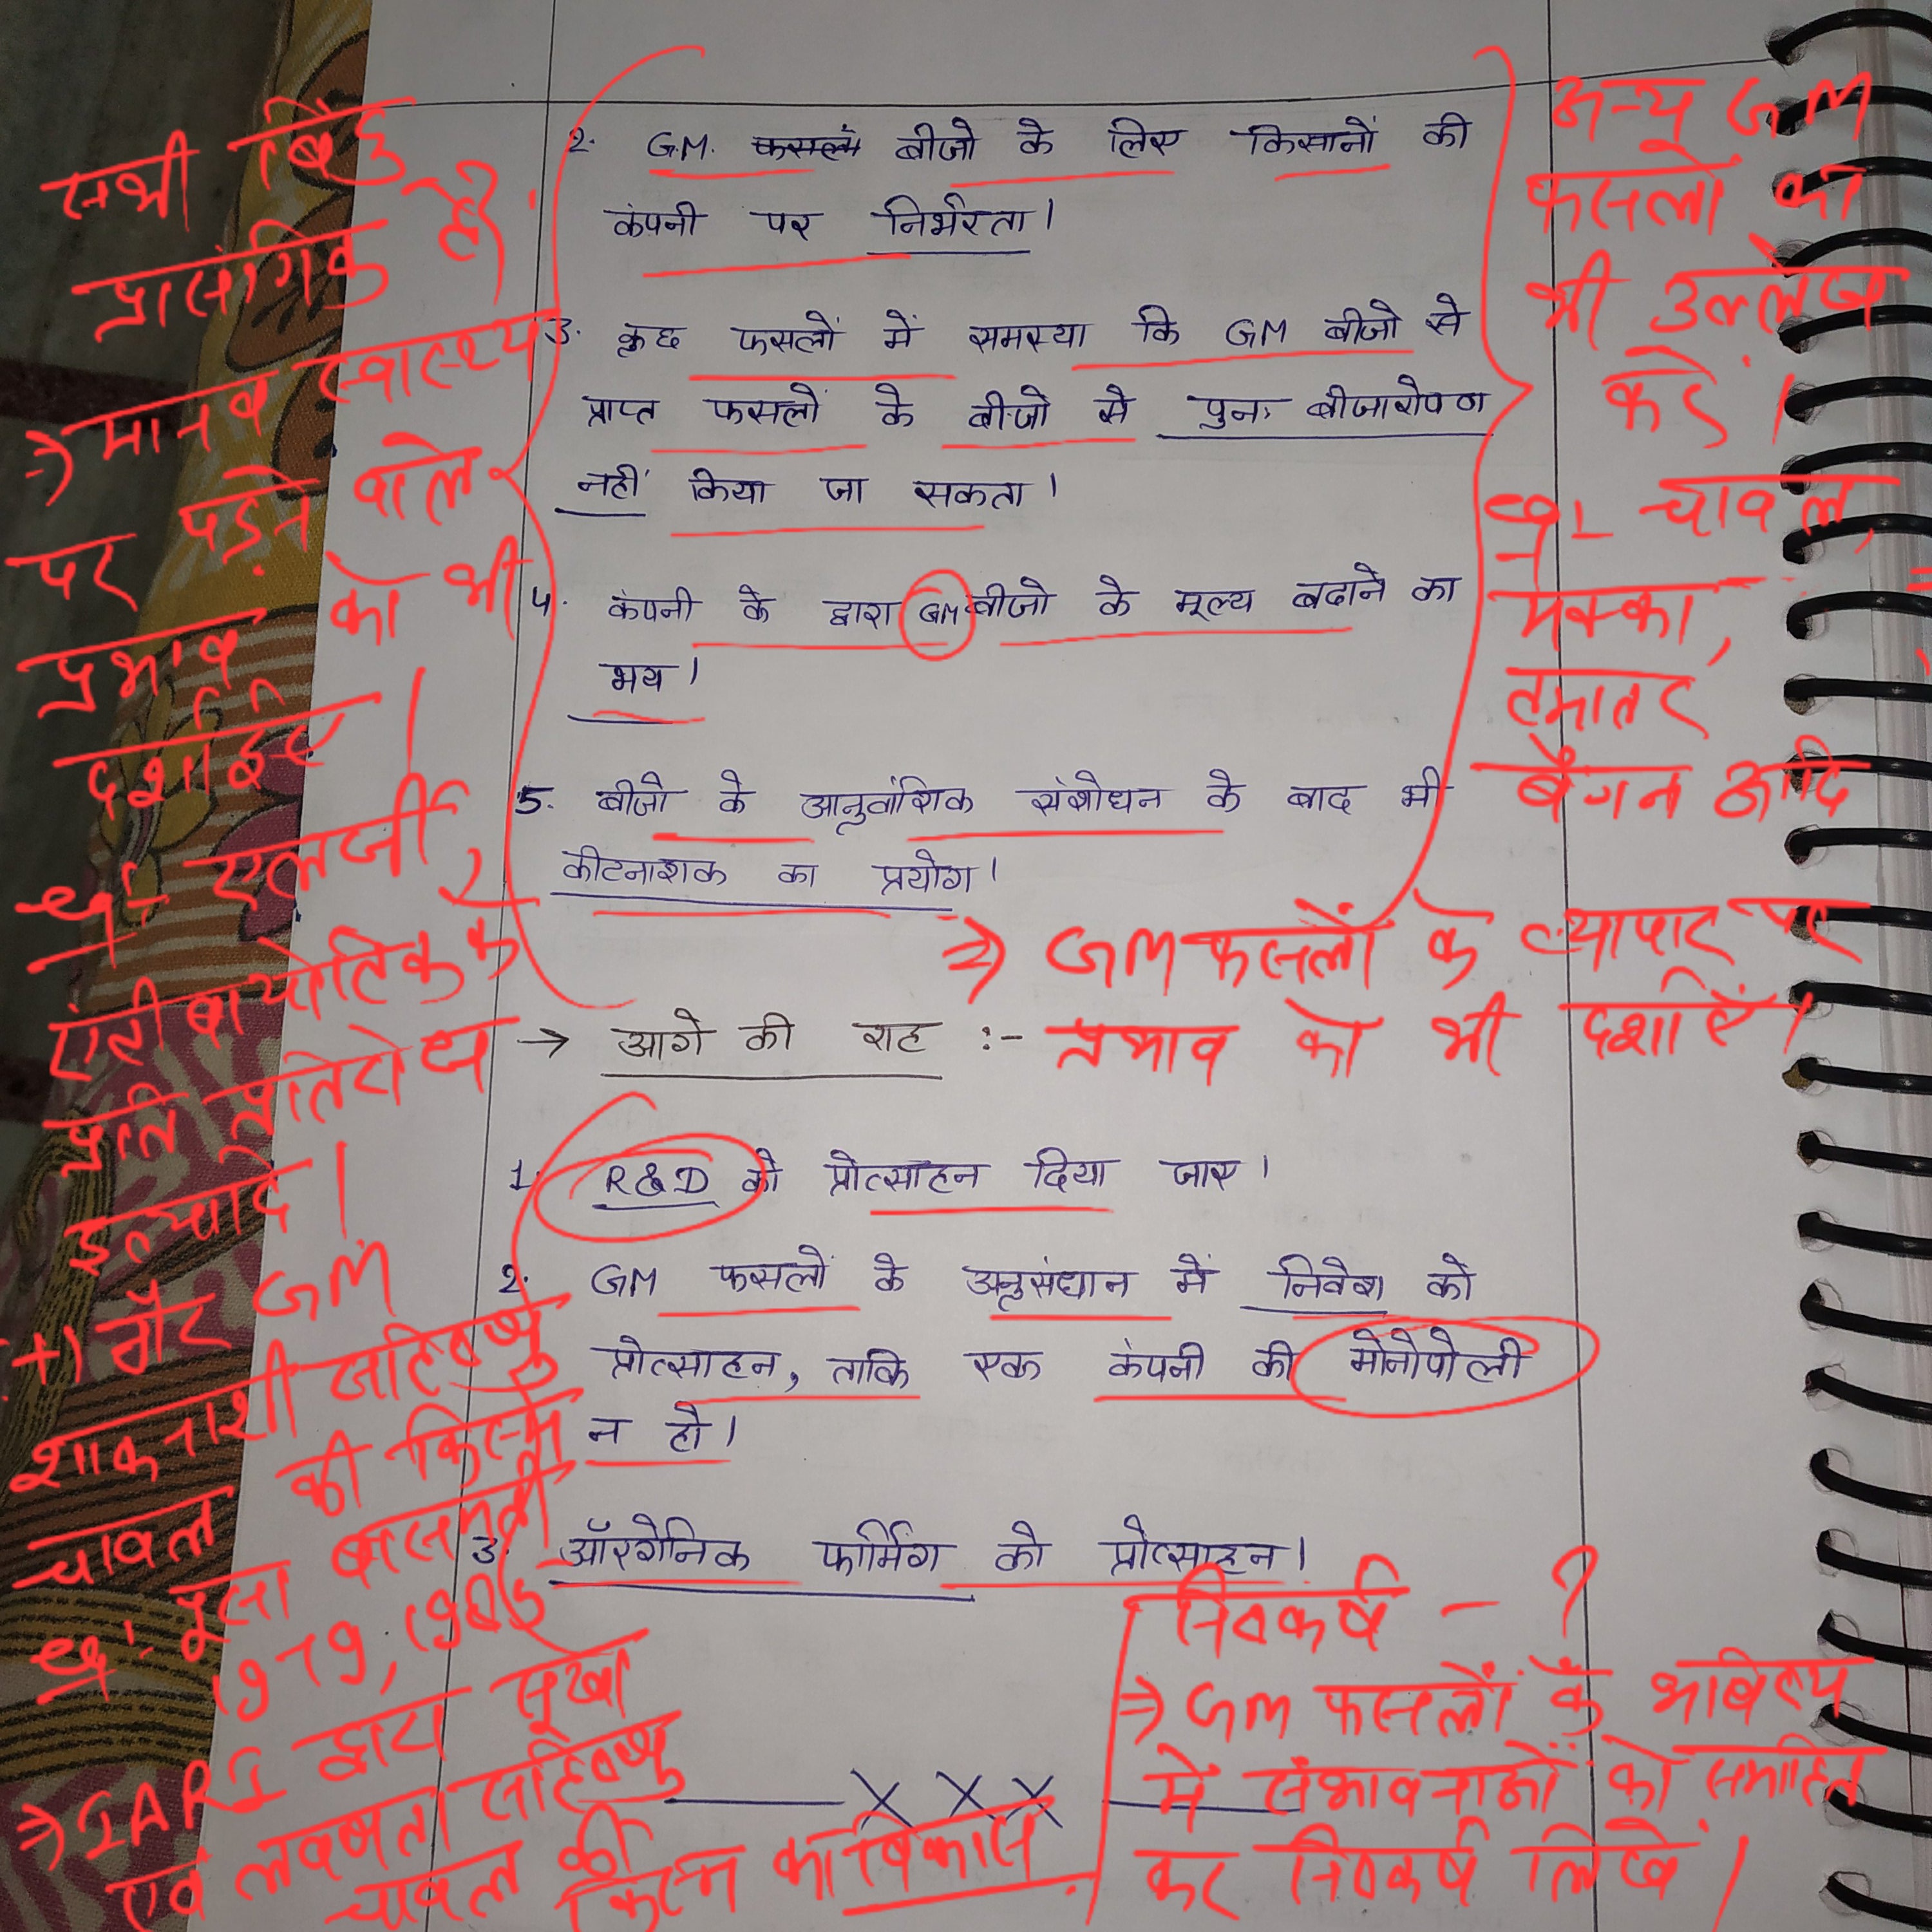 2. G.M. फसलों बीजो के लिए किसानों की
कंपनी पर निर्भरता।
3. कुछ फसलों में समस्या कि GM बीजो से
प्राप्त फसलों के बीजो से पुनः बीजारोपण
नहीं किया जा सकता।
4. कंपनी के द्वारा GM बीजो के मूल्य बढाने का
भय।
5. बीजो के आनुवांशिक संशोधन के बाद भी
कीटनाशक का प्रयोग।
→ आगे की राह :-
1. R&D को प्रोत्साहन दिया जाए।
2. GM फसलों के अनुसंधान में निवेश को
प्रोत्साहन, ताकि एक कंपनी की मोनोपोली
न हो।
3. ऑरगेनिक फार्मिंग को प्रोत्साहन।
XXX
सभी बिंदु
प्रासंगिक हैं।
⇒ मानव स्वास्थ्य
पर पड़ने वाले
प्रभाव को भी
दर्शाइए।
eg:- एलर्जी,
एंटीबायोटिक के
प्रति प्रतिरोध
इत्यादि।
(+) गैर GM
शाकनाशी सहिष्णु
चावल की किस्में
eg:- पूसा बासमती
1979, 1985
⇒ IARI द्वारा सूखा
एवं लवणता सहिष्णु
चावल की
किस्म का विकास
अन्य GM
फसलों का
भी उल्लेख
करें।
eg:- चावल,
मक्का,
टमाटर
बैंगन आदि
⇒ GM फसलों के व्यापार पर
प्रभाव को भी दर्शाएं।
निष्कर्ष - ?
⇒ GM फसलों के भविष्य
में संभावनाओं को समाहित
कर निष्कर्ष लिखें।